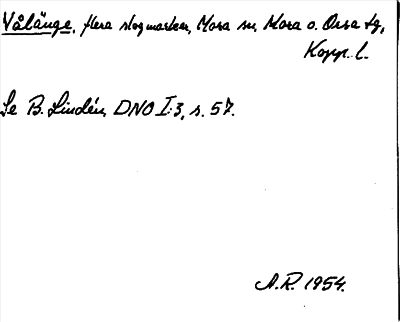 Vålänge, flera slogmarker, Mora sn, Mora o. Orsa tg,
Kopp. l.
Se B. Lindén, DNO I:3, s. 57.
A.R. 1954.